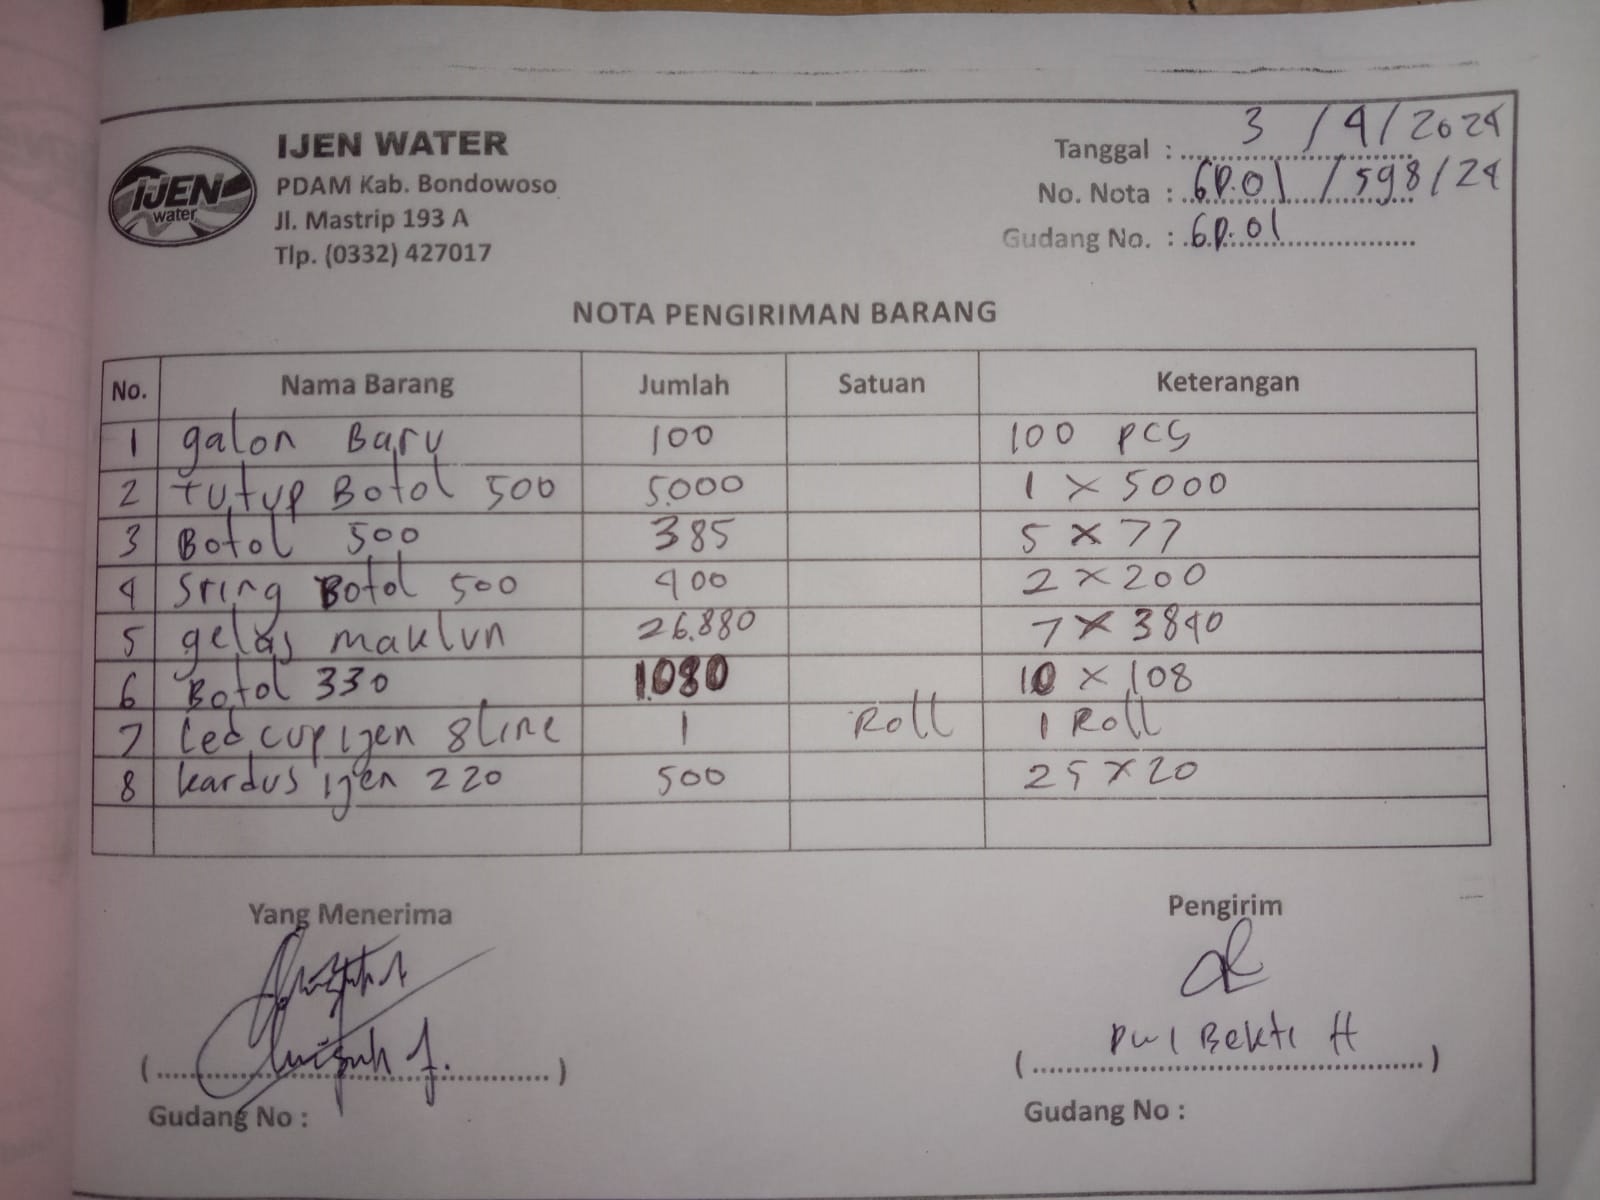 IJEN
water
IJEN WATER
PDAM Kab. Bondowoso
Jl. Mastrip 193 A
Tlp. (0332) 427017
Tanggal : 3 / 4 / 2024
No. Nota : GD.01 / 598 / 24
Gudang No. : GD.01
NOTA PENGIRIMAN BARANG
No. Nama Barang Jumlah Satuan Keterangan
1 galon Baru 100 100 pcs
2 Tutup Botol 500 5.000 1 x 5000
3 Botol 500 385 5 x 77
4 Sring Botol 500 400 2 x 200
5 gelas maklun 26.880 7 x 3840
6 Botol 330 1.080 10 x 108
7 Led cup ijen 8 line 1 Roll 1 Roll
8 kardus ijen 220 500 25 x 20
Yang Menerima Pengirim
Dwi Bekti H
Gudang No : Gudang No :